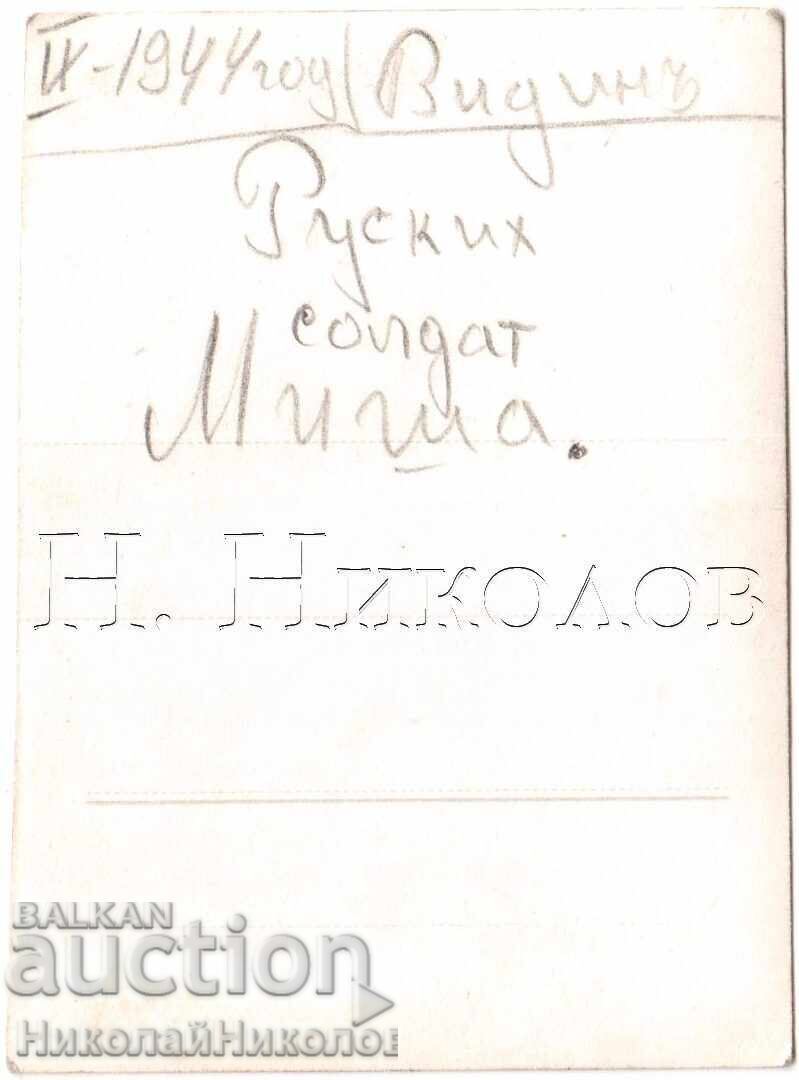 IX-1944 год/Видинъ
Руских
солдат
Миша.
Н. Николов
BALKAN
auction
НиколайНиколов